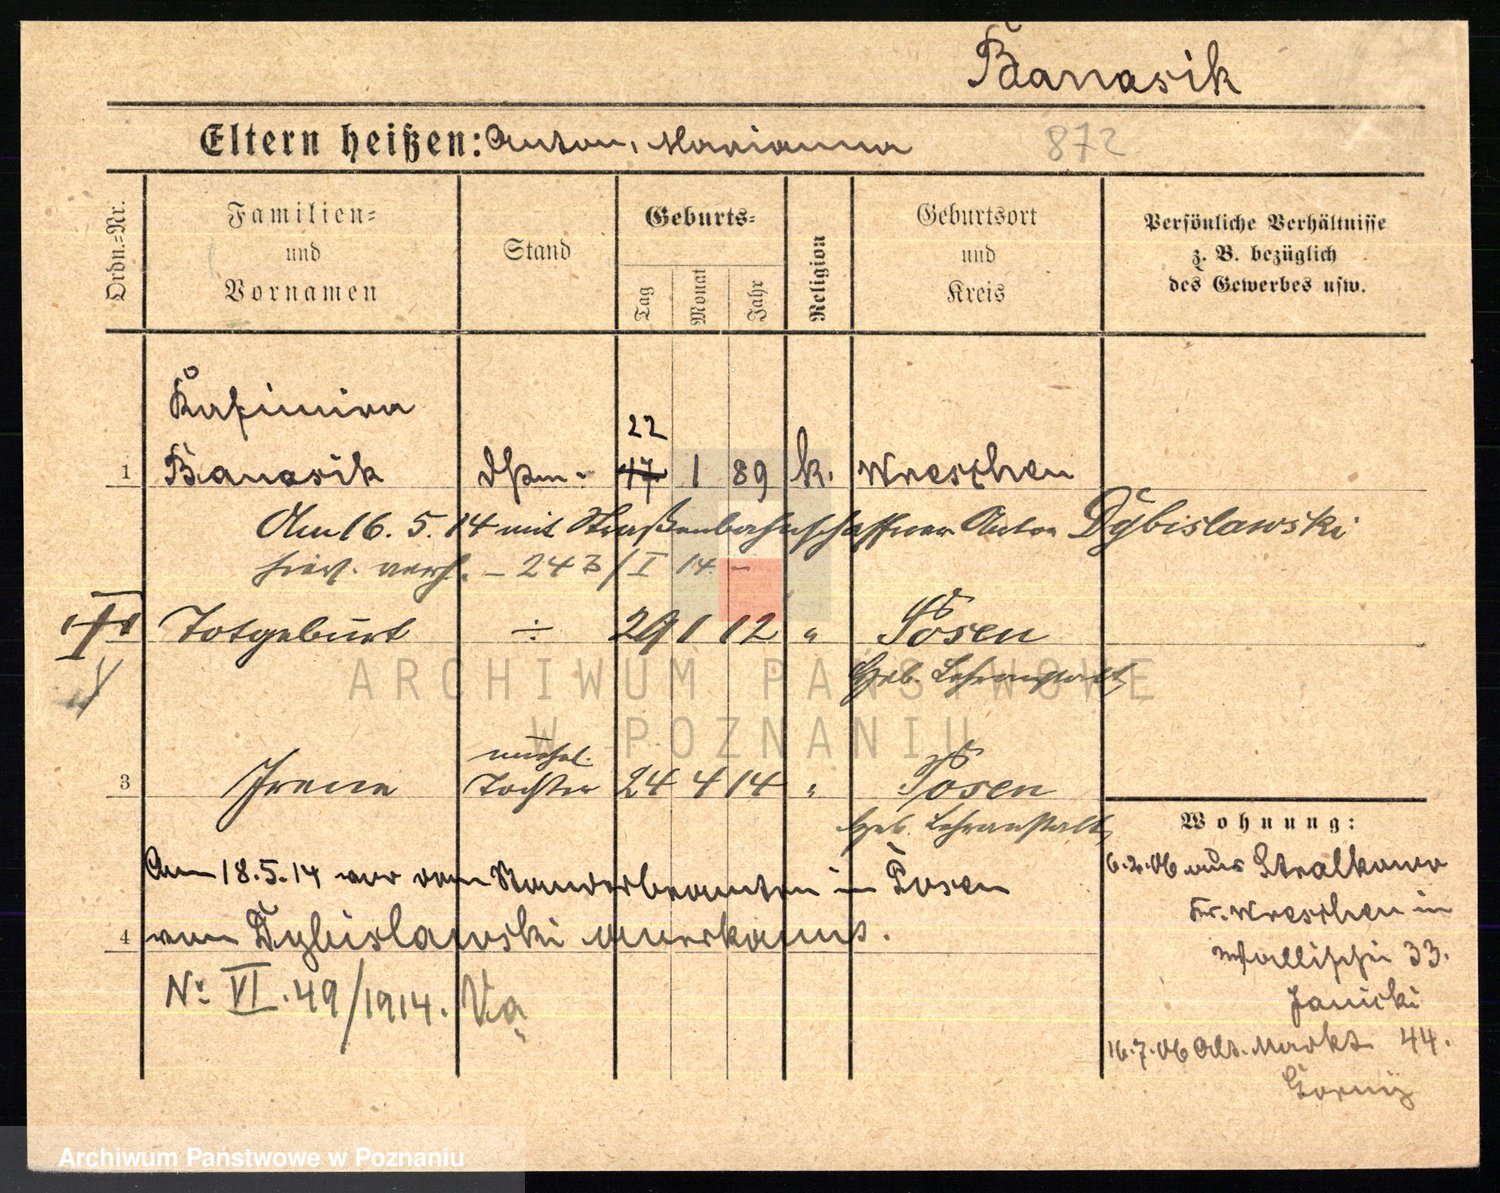 Banasik
Eltern heißen: Anton, Marianna 872
Ordn.-Nr. Familien- und Vornamen Stand Geburts- Tag Monat Jahr Religion Geburtsort und Kreis Persönliche Verhältnisse z. B. bezüglich des Gewerbes usw.
Kasimira
22
1 Banasik 17 1 89 k. Wreschen
Am 16. 5. 14 mit Straßenbahnschaffner Anton Dybislawski
hier. verh. – 243/I 14. –
Totgeburt ÷ 29 1 12 " Posen
Heb. Lehranstalt
unehel.
3 Irene Tochter 24 4 14 " Posen
Heb. Lehranstalt
Wohnung:
Am 18.5.14 vor dem Standesbeamten in Posen
4 von Dybislawski anerkannt.
No VI. 49/1914.
6.2.06 aus Stralkowo
Kr. Wreschen in
Wallischei 33.
Janicki
16.7.06 Alt. Markt 44.
Gorny
ARCHIWUM PAŃSTWOWE
W POZNANIU
Archiwum Państwowe w Poznaniu